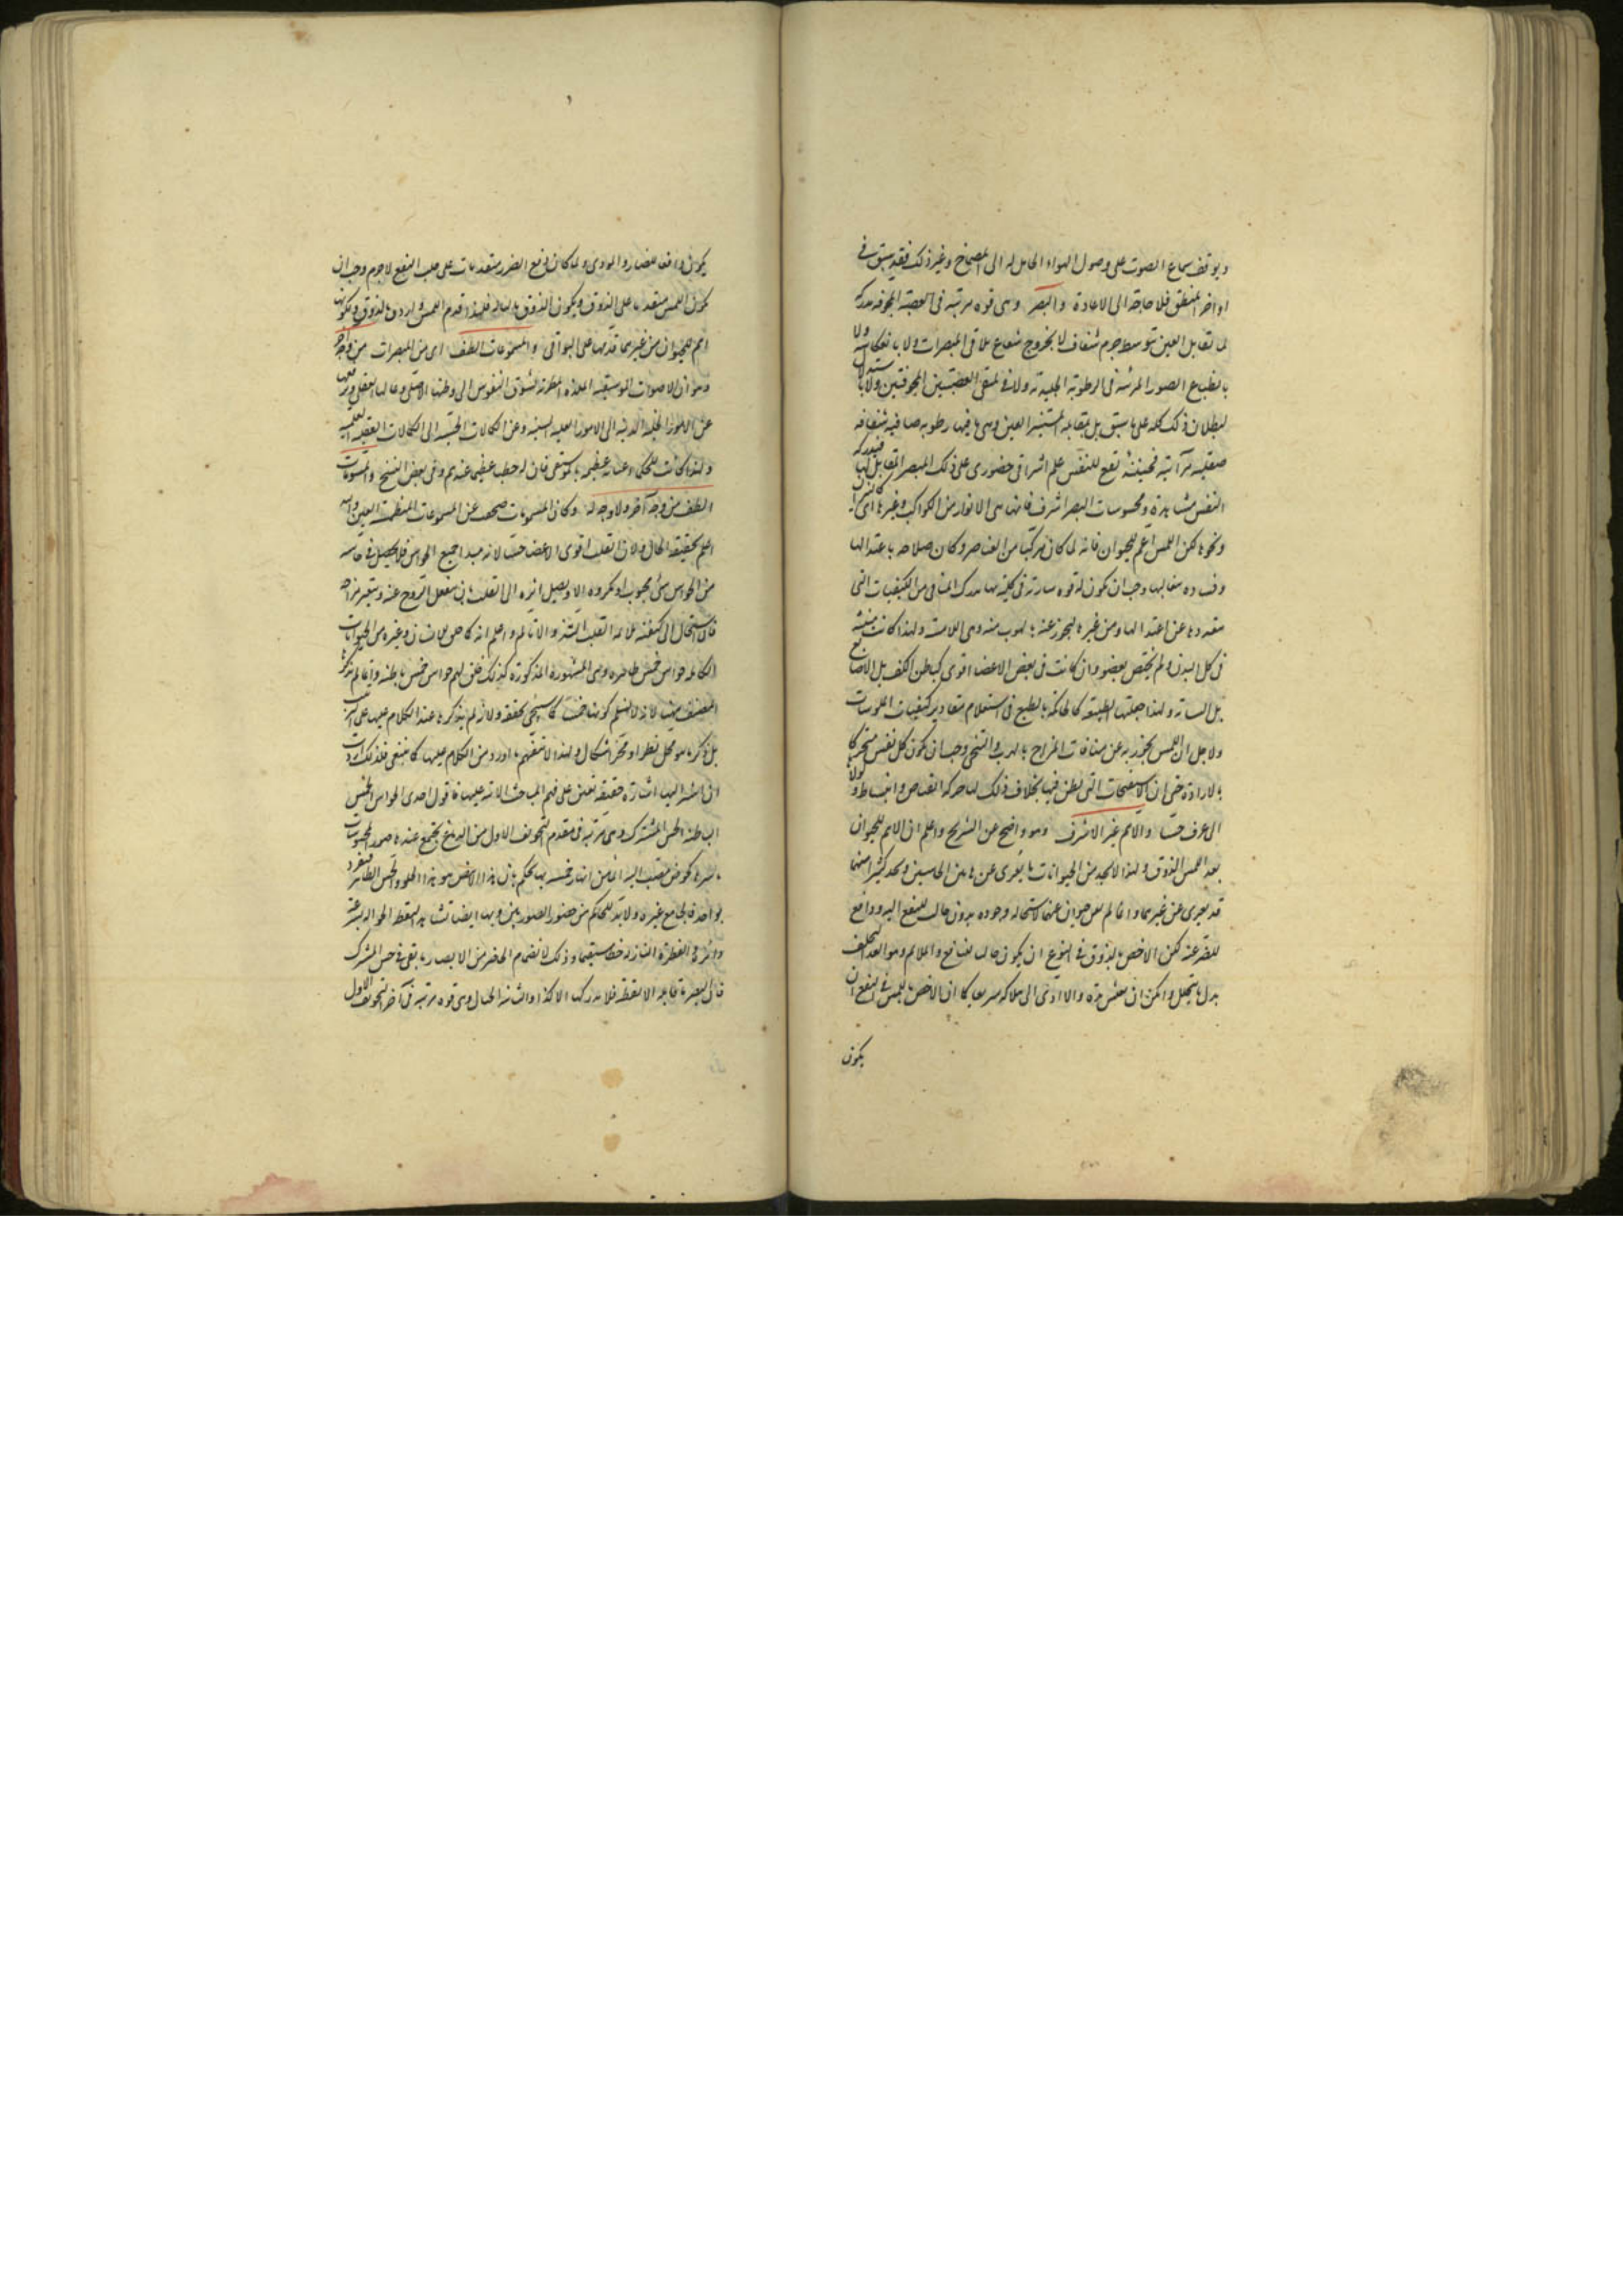 ويوقف سماع الصوت على وصول الهواء الحامل له الى الصماخ وغير ذلك فقد سبق في
اواخر المنطق فلا حاجة الى الاعادة والبصر وهى قوة مرتبة فى العصبة المجوفة مدركة
لما تقابل العين بتوسط جرم شفاف لا بخروج شعاع يلاقى المبصرات ولا بانعكاسه ولا
بانطباع الصور المرئية فى الرطوبة الجليدية ولا فى ملتقى العصبتين المجوفتين ولا باستدلال
لبطلان ذلك كله على ما سبق بل بمقابلة المستنير العين وهى ما فيها رطوبة صافية شفافة
صقيلة مرآتية فحينئذ تقع للنفس علم اشراقى حضورى على ذلك المبصر المقابل لها فيدركه
النفس مشاهدة ومحسوسات البصر اشرف فانها هى الانوار من الكواكب وغيرها
ونحوها لكن اللمس اعم للحيوان فانه لما كان مركبا من العناصر وكان صلاحه باعتدالها
وفساده بغالبها وجب ان يكون له قوة سارية فى كليته بها يدرك المنافى من الكيفيات التى
عن اعتدالها ومن غيره ليحترز عنه بالهرب منه وهى اللامسة ولهذا كانت منبثة
فى كل البدن ولم يختص بعضو وان كانت فى بعض الاعضاء اقوى كباطن الكف بل الاصابع
بل السبابة ولهذا جعلتها الطبيعة كالحاكمة بالطبع فى استعلام مقادير كيفيات الملموسات
ولاجل ان اللمس يحترز به عن منافيات المزاج بالهرب والتنحى وجب ان يكون كل نفس متحركا
بالارادة حتى ان الاسفنجات التى يظن فيها بخلاف ذلك لها حركة انقباض وانبساط ولولا
الم عرف حسا والاهم غير الاشرف وهو واضح عن الشرح واعلم ان الاهم للحيوان
بعد اللمس الذوق ولهذا لا نجد من الحيوانات ما يعرى عن هاتين الحاستين ونجد كثيرا منها
قد يعرى عن غيرهما وانما لم يعر حيوان عنهما لاستحالة وجوده بدون جالب للنفع اليه ودافع
للضر عنه لكن الاخص بالذوق فى النوع ان يكون جالب لنفع والملايم وهو الغذاء ليخلف
بدل ما يتحلل وامكن ان يعيش مدة والا ادى الى هلاكه سريعا كما ان الاخص باللمس فى النفع ان
يكون
يكون دافعا للضار والموذى ولما كان دفع الضرر متقدما على جلب النفع لا جرم وجب ان
يكون اللمس متقدما على الذوق ويكون الذوق تاليا له فلهذا قدم اللمس واردف بالذوق ولكونها
اهم للحيوان من غيرهما قدمها على البواقى والمسموعات الطف اى من المبصرات من وجه آخر
وهو ان الاصوات الموسيقية الملذة المطربة تشوق النفوس الى وطنها الاصلى وعالمها العقلى
عن الامور الدنية الى الامور العلية السنية وعن الكمالات الحسية الى الكمالات العقلية
ولهذا كانت للحكماء عناية عظيمة بالموسيقى فان له خطب عظيم عندهم وفى بعض النسخ والمشمومات
الطف من وجه آخر ولا وجه له وكان المشمومات صحف عن المسموعات والله
اعلم بحقيقة الحال ولان القلب اقوى الاعضاء حسا لانه مبدا جميع الحواس فلا يحصل فى حاسة
من الحواس شئ محبوب او مكروه الا ويصل اثره الى القلب بان ينفعل الروح عنه ويتغير مزاجه
القلب التذ والا تالم واعلم انه كما حق للانسان وغيره من الحيوانات
الكاملة حواس خمس ظاهرة وهى المشهورة المذكورة كذلك خلق لهم حواس خمس باطنة وانما لم يذكرها
المصنف هنا لانه لا يسلم كونها خمسا كما سيجئ تحقيقه ولانه لم يذكرها عند الكلام عليها على الترتيب
بل ذكر ما هو محل نظر او محز اشكال ولهذا اورد من الكلام عليها كما ينبغى فلذلك اردت
ان اشير اليها اشارة خفيفة تعين على فهم المباحث الآتية عليها فاقول احدى الحواس الخمس
الباطنة الحس المشترك وهى مرتبة فى مقدم التجويف الاول من الدماغ يجتمع عنده صور المحسوسات
باسرها كحوض ينصب اليه الماء من انهار خمسة بها يحكم بان هذا الابيض هو هذا الحلو والحس الظاهر منفرد
بواحد فالجامع غيره ولا بد للحاكم من حضور الصورتين وبها ايضا نشاهد النقطة الجوالة بسرعة
دائرة والقطرة النازلة خطا مستقيما وذلك لانضمام الحاضر من الابصار بما بقى فى حس المشترك
فان البصر ما قابله الا نقطة فلا يدركها الا كذا والثانية الخيال وهى قوة مرتبة فى آخر التجويف الاول